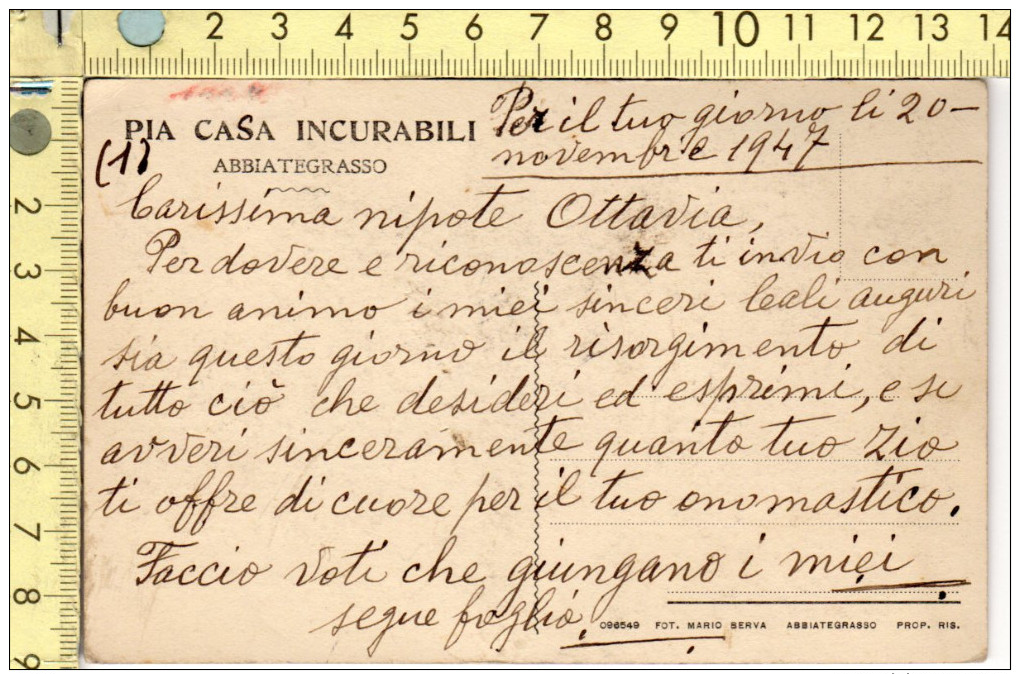 2 3 4 5 6 7 8 9 10 11 12 13 14
2
3
4
5
6
7
8
9
PIA CASA INCURABILI
ABBIATEGRASSO
(1)
Per il tuo giorno lì 20-
novembre 1947
Carissima nipote Ottavia,
Per dovere e riconoscenza ti invio con
buon animo i miei sinceri leali auguri
sia questo giorno il risorgimento di
tutto ciò che desideri ed esprimi, e si
avveri sinceramente quanto tuo zio
ti offre di cuore per il tuo onomastico.
Faccio voti che giungano i miei
segue foglio.
096549 FOT. MARIO SERVA ABBIATEGRASSO PROP. RIS.